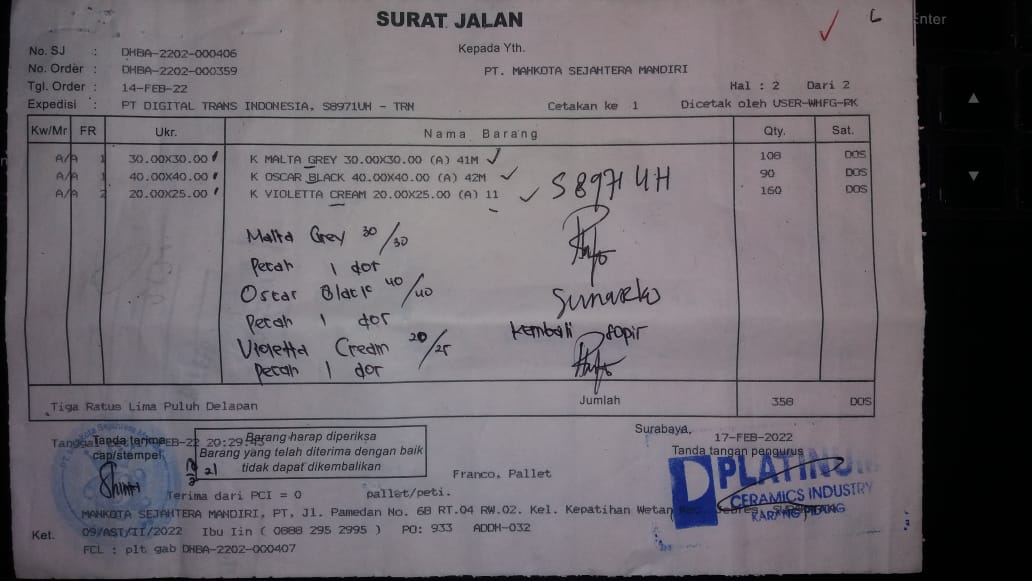 SURAT JALAN
No. SJ : DHBA-2202-000406
Kepada Yth.
No. Order : DHBA-2202-000359
PT. MAHKOTA SEJAHTERA MANDIRI
Tgl. Order : 14-FEB-22
Hal : 2 Dari 2
Expedisi : PT DIGITAL TRANS INDONESIA, S8971UH - TRN
Cetakan ke 1
Dicetak oleh USER-WHFG-PK
Kw/Mr FR Ukr. Nama Barang Qty. Sat.
A/A 1 30.00X30.00 K MALTA GREY 30.00X30.00 (A) 41M 108 DOS
A/A 1 40.00X40.00 K OSCAR BLACK 40.00X40.00 (A) 42M 90 DOS
A/A 2 20.00X25.00 K VIOLETTA CREAM 20.00X25.00 (A) 11 160 DOS
S 8971 UH
Malta Grey 30/30
Pecah 1 dor
Oscar Black 40/40
Pecah 1 dor
Sunarko
Violetta Cream 20/25
Pecah 1 dor
kembali sopir
Tiga Ratus Lima Puluh Delapan
Jumlah 358 DOS
Surabaya, 17-FEB-2022
Tanda terima
cap/stempel
Barang harap diperiksa
Barang yang telah diterima dengan baik
tidak dapat dikembalikan
Tanda tangan pengurus
PLATINUM
CERAMICS INDUSTRY
KARANG PILANG
Franco, Pallet
Terima dari PCI = 0 pallet/peti.
MAHKOTA SEJAHTERA MANDIRI, PT, Jl. Pamedan No. 68 RT.04 RW.02. Kel. Kepatihan Wetan
Ket. 09/AST/II/2022 Ibu Iin ( 0888 295 2995 ) PO: 933 ADDH-032
FCL : plt gab DHBA-2202-000407
Enter